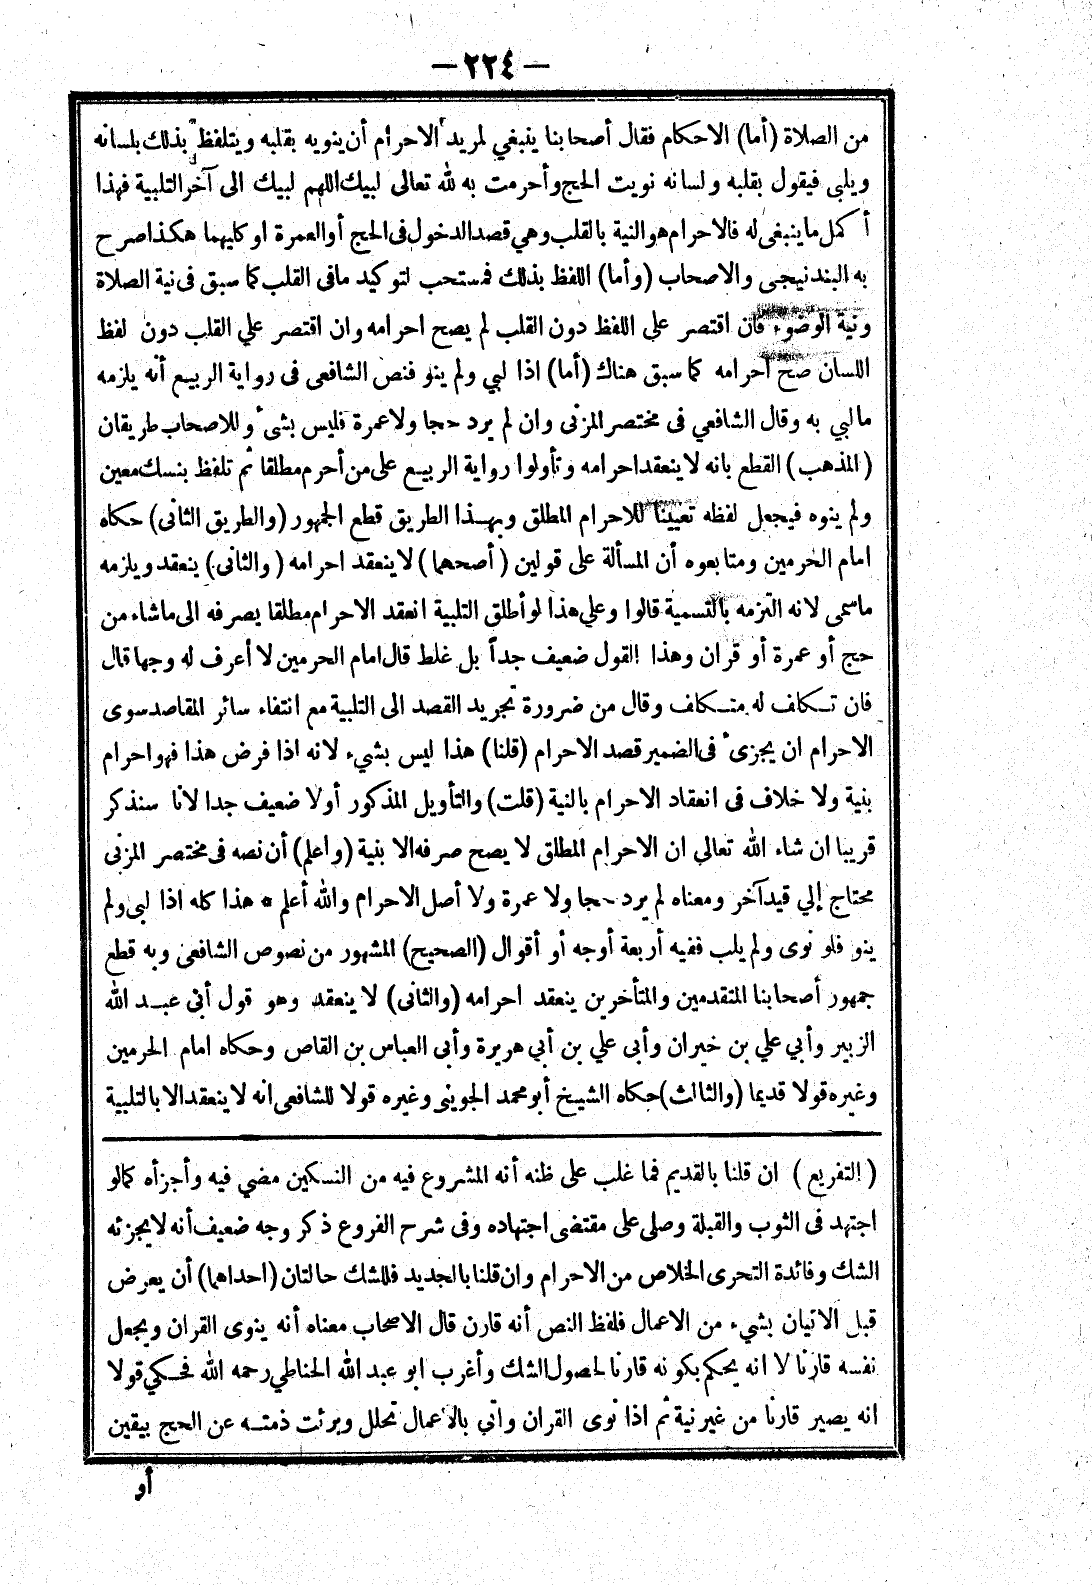 — ٢٢٤ —
من الصلاة (أما) الاحكام فقال أصحابنا ينبغي لمريد الاحرام أن ينويه بقلبه ويتلفظ بذلك بلسانه
ويلبى فيقول بقلبه ولسانه نويت الحج وأحرمت به لله تعالى لبيك اللهم لبيك الى آخر التلبية فهذا
أكمل ما ينبغى له فالاحرام هو النية بالقلب وهي قصد الدخول فى الحج أو العمرة او كليهما هكذا صرح
به البندنيجى والاصحاب (وأما) اللفظ بذلك فمستحب لتوكيد مافى القلب كما سبق فى نية الصلاة
ونية الوضوء فان اقتصر على اللفظ دون القلب لم يصح احرامه وان اقتصر علي القلب دون لفظ
اللسان صح احرامه كما سبق هناك (أما) اذا لبي ولم ينو فنص الشافعى فى رواية الربيع أنه يلزمه
مالبي به وقال الشافعي فى مختصر المزنى وان لم يرد حجا ولا عمرة فليس بشىء وللاصحاب طريقان
(المذهب) القطع بانه لا ينعقد احرامه وتأولوا رواية الربيع على من أحرم مطلقا ثم تلفظ بنسك معين
ولم ينوه فيجعل لفظه تعيينا للاحرام المطلق وبهـذا الطريق قطع الجمهور (والطريق الثانى) حكاه
امام الحرمين ومتابعوه أن المسألة على قولين (أصحهما) لا ينعقد احرامه (والثانى) ينعقد ويلزمه
ماسمى لانه التزمه بالتسمية قالوا وعلي هذا لو أطلق التلبية انعقد الاحرام مطلقا يصرفه الى ماشاء من
حج أو عمرة أو قران وهذا القول ضعيف جداً بل غلط قال امام الحرمين لا أعرف له وجها قال
فان تـكلف له متـكلف وقال من ضرورة تجريد القصد الى التلبية مع انتفاء سائر المقاصد سوى
الاحرام ان يجزىء فى الضمير قصد الاحرام (قلنا) هذا ليس بشيء لانه اذا فرض هذا فهو احرام
بنية ولا خلاف فى انعقاد الاحرام بالنية (قلت) والتأويل المذكور أولا ضعيف جدا لانا سنذكر
قريبا ان شاء الله تعالي ان الاحرام المطلق لا يصح صرفه الا بنية (واعلم) أن نصه فى مختصر المزنى
محتاج إلي قيد آخر ومعناه لم يرد حجا ولا عمرة ولا أصل الاحرام والله أعلم * هذا كله اذا لبى ولم
ينو فلو نوى ولم يلب ففيه أربعة أوجه أو أقوال (الصحيح) المشهور من نصوص الشافعى وبه قطع
جمهور أصحابنا المتقدمين والمتأخرين ينعقد احرامه (والثانى) لا ينعقد وهو قول أبى عبـد الله
الزبير وأبي علي بن خيران وأبى علي بن أبي هريرة وأبى العباس بن القاص وحكاه امام الحرمين
وغيره قولا قديما (والثالث) حكاه الشيخ أبو محمد الجوينى وغيره قولا للشافعى انه لا ينعقد الا بالتلبية
(التفريع) ان قلنا بالقديم فما غلب على ظنه أنه المشروع فيه من النسكين مضي فيه وأجزأه كما لو
اجتهد فى الثوب والقبلة وصلى على مقتضى اجتهاده وفى شرح الفروع ذكر وجه ضعيف أنه لا يجزئه
الشك وفائدة التحرى الخلاص من الاحرام وان قلنا بالجديد فللشك حالتان (احداهما) أن يعرض
قبل الاتيان بشيء من الاعمال فلفظ النص أنه قارن قال الاصحاب معناه أنه ينوى القران ويجعل
نفسه قارنا لا انه يحكم بكونه قارنا لحصول الشك وأغرب ابو عبد الله الحناطي رحمه الله فحكي قولا
انه يصير قارنا من غير نية ثم اذا نوى القران وأتي بالأعمال تحلل وبرئت ذمتـه عن الحج بيقين
أو